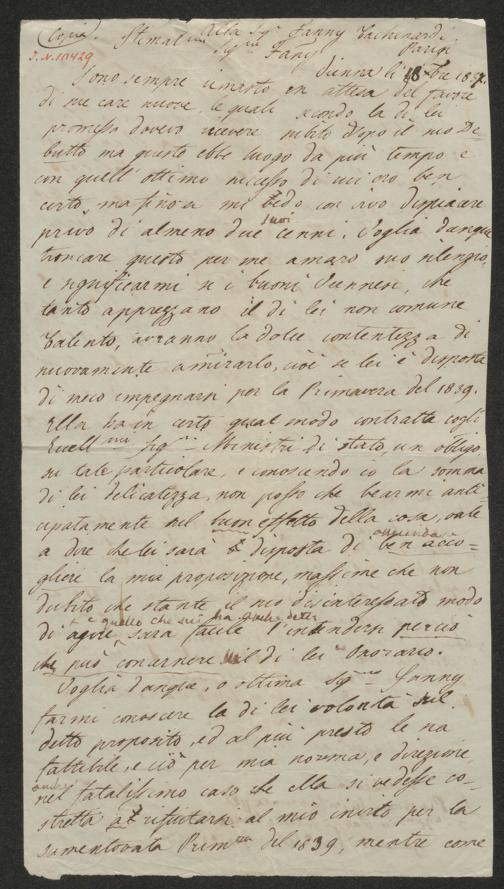 (Copia). Alla Sigra Fanny Tachinardi
Stmat.ma Sigra Fany Parigi
I.N. 10429
Vienna li 18 8bre 1837
Sono sempre rimasto in attesa del favore
di sue care nuove, le quali secondo la di lei
promessa dovevo ricevere subito dopo il suo De-
butto ma questo ebbe luogo da più tempo e
con quell' ottimo successo di cui ero ben
certo, ma finora mi vedo con vivo dispiacere
privo di almeno due suoi cenni. Voglia dunque
troncare questo per me amaro suo silenzio,
e significarmi se i buoni Viennesi, che
tanto apprezzano il di lei non comune
talento, avranno la dolce contentezza di
nuovamente amirarlo, cioè se lei è disposta
di meco impegnarsi per la Primavera del 1839.
Ella ha in certo qual modo contratta cogli
Eccell.mi Sigri Ministri di stato, un obligo
su tale particolare, e conoscendo io la somma
di lei delicatezza, non posso che bearmi anti-
cipatamente nel buon effetto della cosa, vale
a dire che lei sarà disposta di ben acco-
gliere la mia proposizione, massime che non
dubito che stante il mio disinteressato modo
di agire, e quello che mi ha anche detto
sarà facile l'intendersi perciò
che può concernere il di lei Onorario.
Voglia dunque, o ottima Sigra Fanny
farmi conoscere la di lei volontà sul
detto proposito, ed al più presto le sia
fattibile, e ciò per mia norma, e direzione
anche nel fatalissimo caso che ella si vedesse co-
stretta a rifiutarsi al mio invito per la
sumentovata Primra del 1839, mentre come